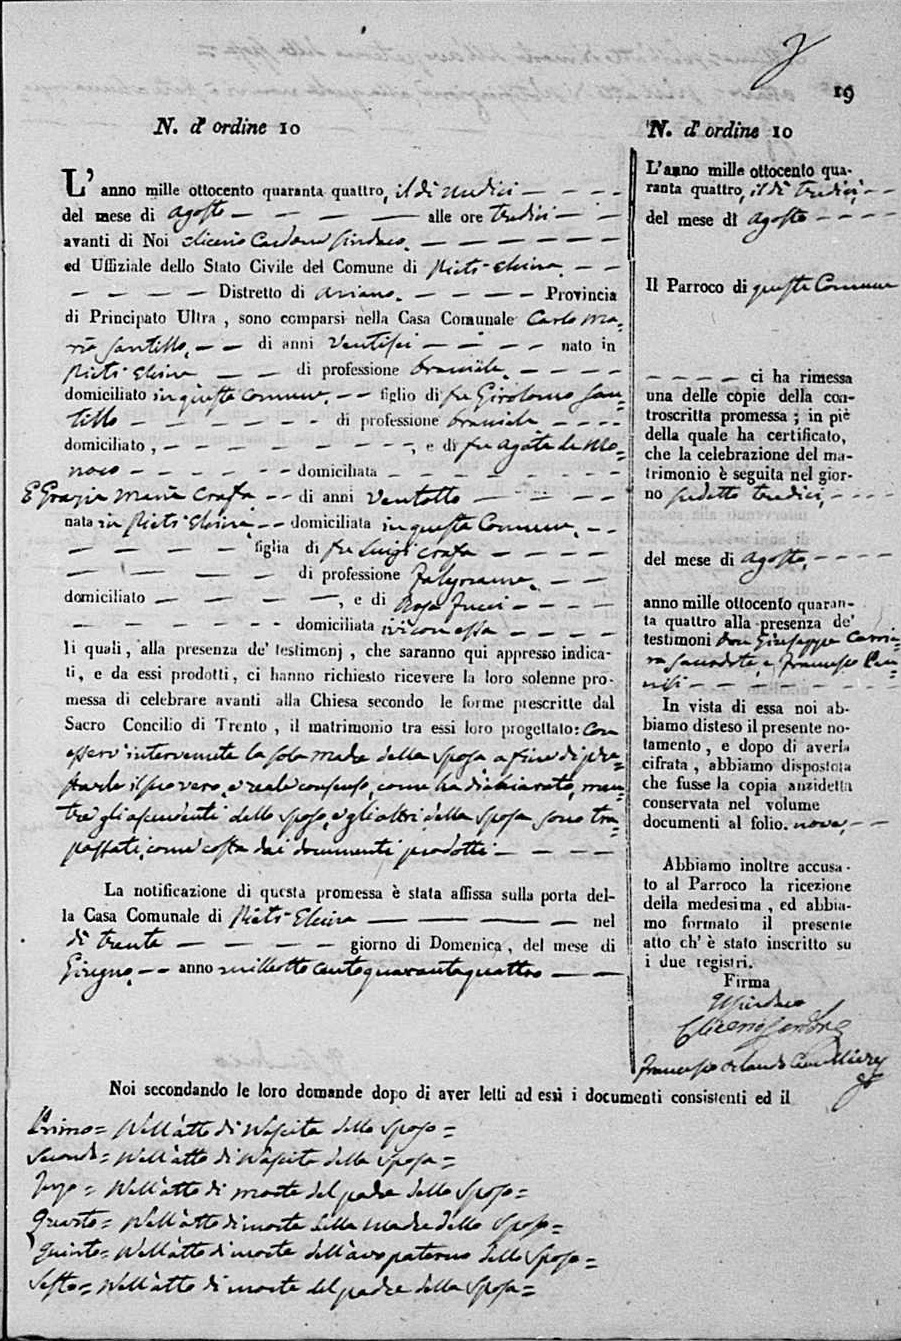 19
N. d'ordine 10
L'anno mille ottocento quaranta quattro, il dì undici
del mese di Agosto alle ore tredici
avanti di Noi Sindaco
ed Uffiziale dello Stato Civile del Comune di
Distretto di Ariano. Provincia
di Principato Ultra, sono comparsi nella Casa Comunale Carlo Ma=
ria Santillo, di anni Ventisei nato in
Pietr' Elcina di professione bracciale.
domiciliato in questo Comune. figlio di fu Girolomo San=
tillo di professione bracciale
domiciliato, , e di fu Agata de
domiciliata
E Grazia Maria Crafa di anni Ventotto
nata in Pietr' Elcina domiciliata in questo Comune,
figlia di fu Luigi Crafa
di professione Falegname.
domiciliato , e di Rosa Fucci
domiciliata ivi con essa
li quali, alla presenza de' testimonj, che saranno qui appresso indica-
ti, e da essi prodotti, ci hanno richiesto ricevere la loro solenne pro-
messa di celebrare avanti alla Chiesa secondo le forme prescritte dal
Sacro Concilio di Trento, il matrimonio tra essi loro progettato: Con
esservi intervenuta la sola madre della sposa a fine di pre=
starle il suo vero, e reale consenso, come ha dichiarato, men=
tre gli ascendenti dello sposo, e gli altri della sposa sono tra=
passati, come costa dai documenti prodotti
La notificazione di questa promessa è stata affissa sulla porta del-
la Casa Comunale di Pietr' Elcina nel
dì trenta giorno di Domenica, del mese di
Giugno. anno mille otto cento quarantaquattro
N. d'ordine 10
L'anno mille ottocento qua-
ranta quattro, il dì tredici,
del mese di Agosto
Il Parroco di questo Comune
ci ha rimessa
una delle copie della con-
troscritta promessa; in piè
della quale ha certificato,
che la celebrazione del ma-
trimonio è seguita nel gior-
no sudetto tredici,
del mese di Agosto,
anno mille ottocento quaran-
ta quattro alla presenza de'
testimoni Don Giuseppe
Sacerdote, e Francesco
In vista di essa noi ab-
biamo disteso il presente no-
tamento, e dopo di averla
cifrata, abbiamo dispostota
che fusse la copia anzidetta
conservata nel volume
documenti al folio. nove,
Abbiamo inoltre accusa-
to al Parroco la ricezione
della medesima, ed abbia-
mo formato il presente
atto ch' è stato inscritto su
i due registri.
Firma
Il Sindaco
Francesco Orlando Cancelliere
Noi secondando le loro domande dopo di aver letti ad essi i documenti consistenti ed il
Primo= Nell'atto di Nascita dello sposo=
Secondo= Nell'atto di Nascita della sposa=
Terzo= Nell'atto di morte del padre dello Sposo=
Quarto= Nell'atto di morte della Madre dello Sposo=
Quinto= Nell'atto di morte dell'avo paterno dello Sposo=
Sesto= Nell'atto di morte del padre della Sposa=